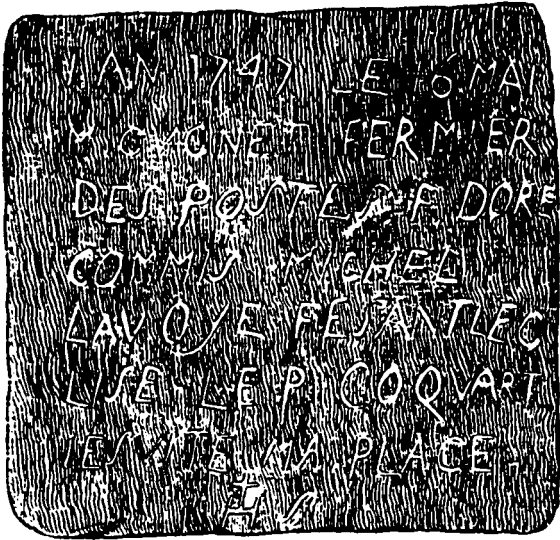 L AN 1747 LE 6 MAI
M. CVGNET FERMIER
DES POSTE F DORE
COMMIS MICHEL
LAVOYE FESANT LEG
LISE LE P COQVART
IESVITE MA PLACE